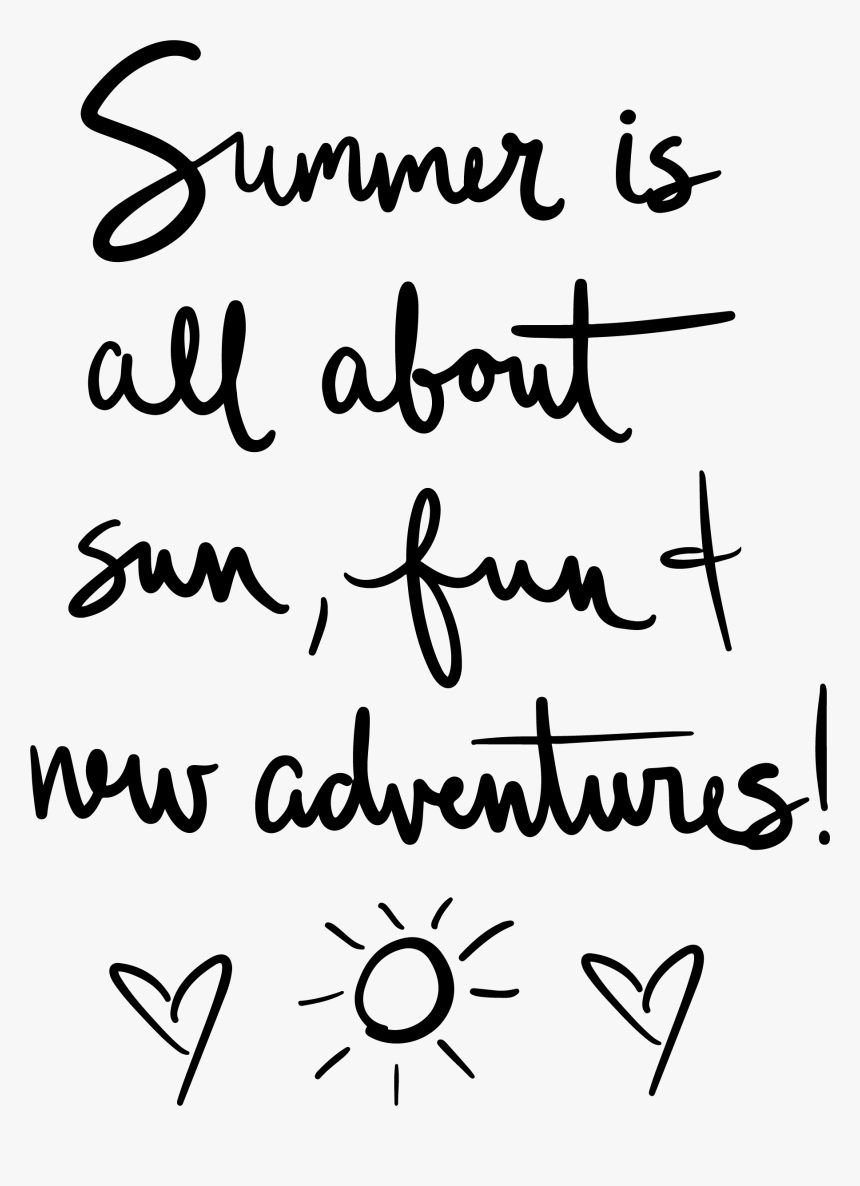 Summer is
all about
sun, fun &
new adventures!